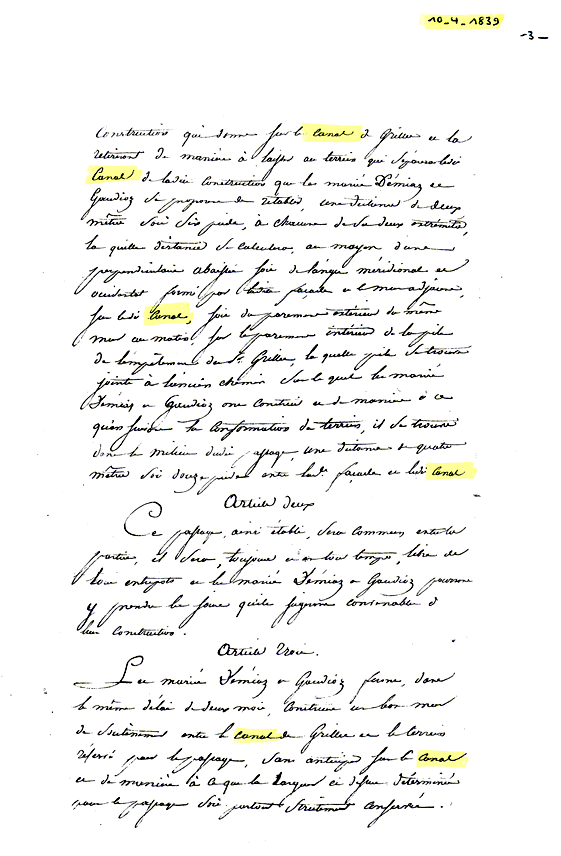 10_4_1839
-3-
Construction qui donne sur le Canal de Grillu et la
retiennent de manière à laisser au terrein qui séparera ledit
Canal de ladite construction que les mariés Démiaz et
Gaudioz se proposent de rétablir, une distance de deux
mètres soit six pieds, à chacune de ses deux extrémités,
la quelle distance se calculera, au moyen d'une
perpendiculaire abaissée soit de l'angle méridional et
occidental formé par ladite façade et le mur adjacent,
sur ledit Canal, soit du parement extérieur du même
mur au matin, sur le parement intérieur de la pile
de l'empêtement du Sr. Grillu, la quelle pile se trouve
jointe à l'ancien chemin sur le quel les mariés
Démiaz et Gaudioz ont construit et de manière à ce
qu'en suivant la conformation du terrein, il se trouve
dans le milieu dudit passage, une distance de quatre
mètres soit douze pieds entre ladte façade et ledit Canal
Article deux
Ce passage, ainsi établi, sera commun entre les
parties, il sera, toujours et en tout temps, libre de
tout entrepôts et les mariés Démiaz et Gaudioz pourront
y prendre les jours qu'ils jugeront convenables à
leur construction.
Article Trois.
Les mariés Démiaz et Gaudioz feront, dans
le même délai de deux mois, construire un bon mur
de soutènement entre le canal de Grillu et le terrein
réservé pour le passage, sans anticiper sur le Canal
et de manière à ce que la largeur ci dessus déterminée
pour le passage soit partout strictement conservée.